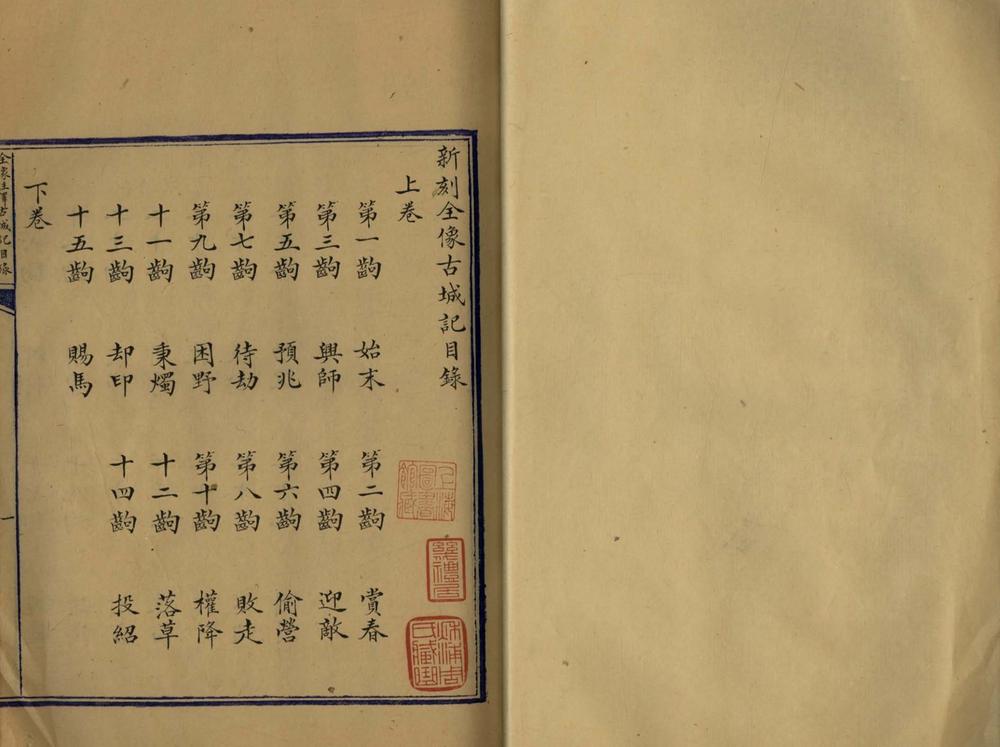 新刻全像古城記目錄
上卷
第一齣 始末 第二齣 賞春
第三齣 興師 第四齣 迎敵
第五齣 預兆 第六齣 偷營
第七齣 待劫 第八齣 敗走
第九齣 困野 第十齣 權降
十一齣 秉燭 十二齣 落草
十三齣 却印 十四齣 投紹
十五齣 賜馬
下卷
全像註釋古城記目錄
一
上海圖書館藏
幾禮居